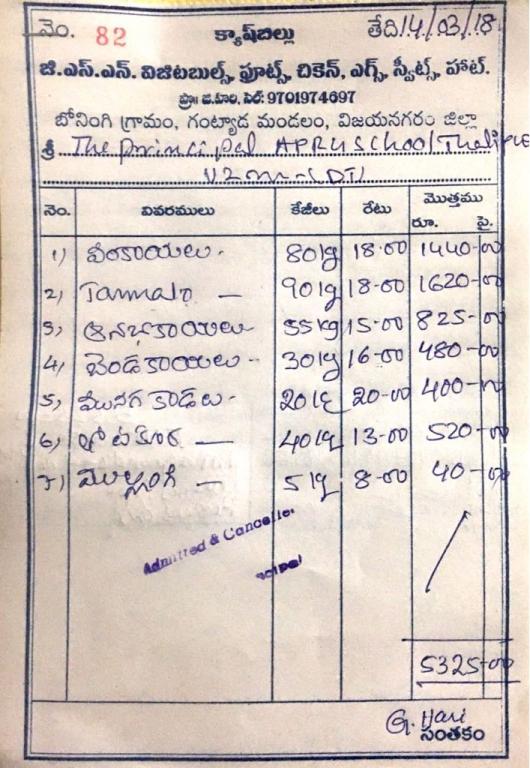 నెం. 82 క్యాష్‌బిల్లు తేది 14/03/18
జి.ఎస్.ఎన్. విజిటబుల్స్, ఫ్రూట్స్, చికెన్, ఎగ్స్, స్వీట్స్, హాట్.
ప్రొ॥ జి.హరి, సెల్: 9701974697
బోనంగి గ్రామం, గంట్యాడ మండలం, విజయనగరం జిల్లా
శ్రీ The Principal APRH School
నెం. వివరములు కేజీలు రేటు మొత్తము
రూ. పై.
1) వంకాయలు - 80 kg 18-00 1440-00
2) Tammato — 90 kg 18-00 1620-00
3) ఆనభకాయలు - 55 kg 15-00 825-00
4) బెండకాయలు - 30 kg 16-00 480-00
5) మునగకాడలు - 20 kg 20-00 400-00
6) తోటకూర — 40 kg 13-00 520-00
7) ముల్లంగి — 5 kg 8-00 40-00
Admitted & Cancelle
ncipal
5325-00
G. Hari
సంతకం